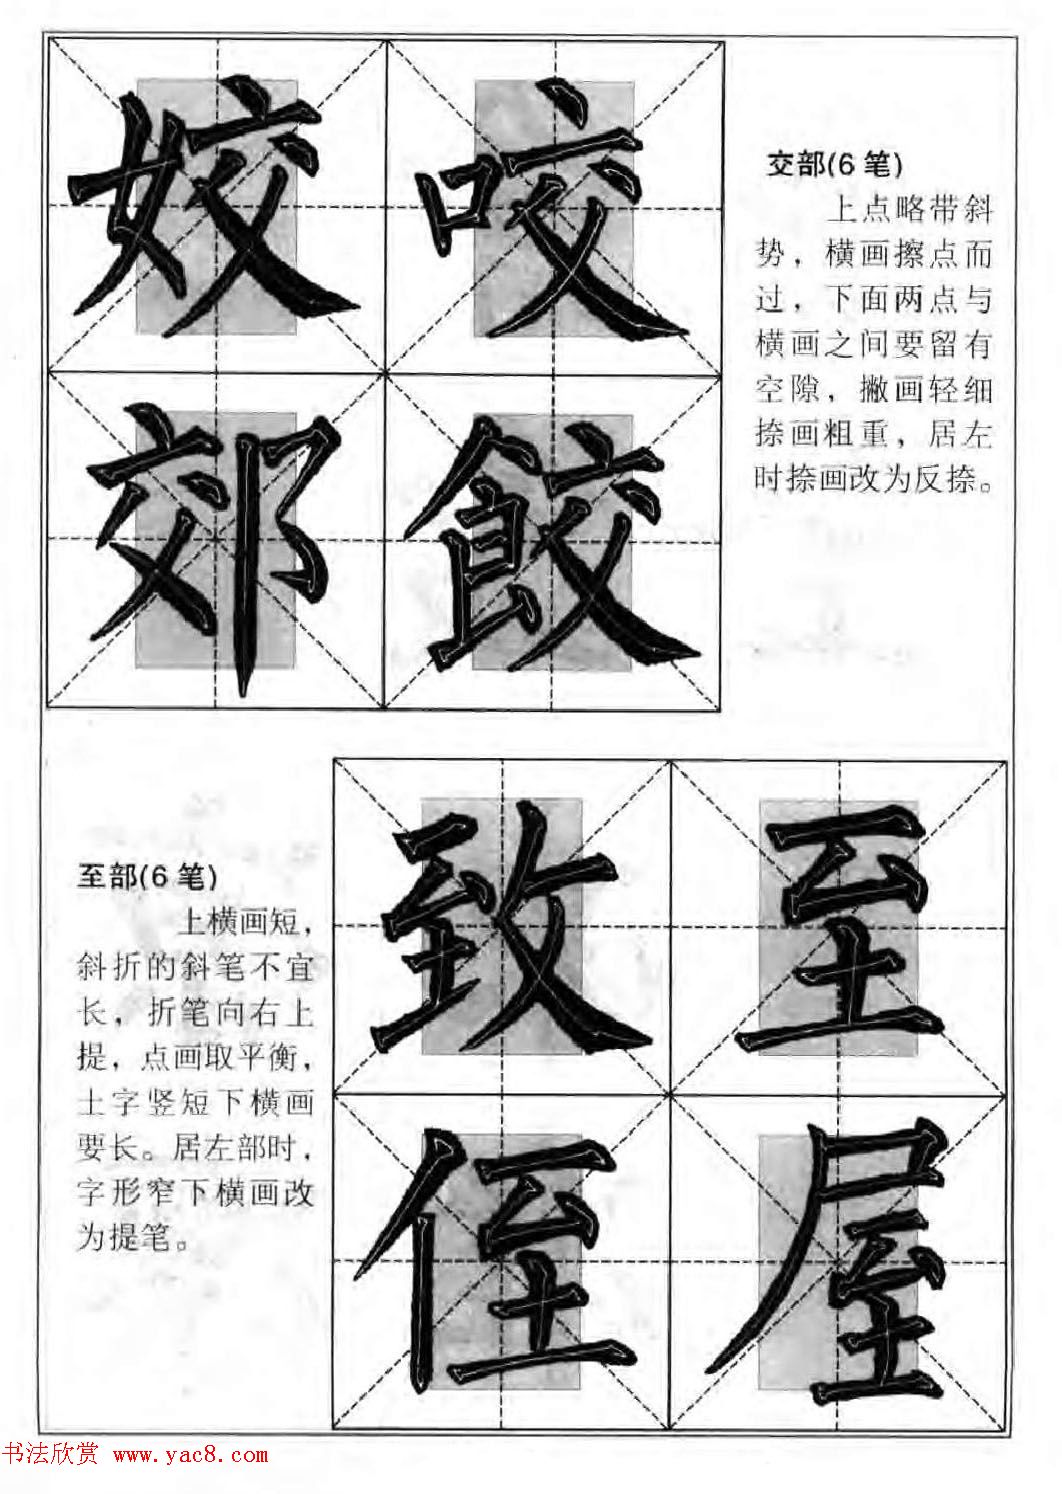 姣咬
郊餃
交部(6笔)
上点略带斜
势，横画擦点而
过，下面两点与
横画之间要留有
空隙，撇画轻细
捺画粗重，居左
时捺画改为反捺。
至部(6笔)
上横画短，
斜折的斜笔不宜
长，折笔向右上
提，点画取平衡，
土字竖短下横画
要长。居左部时，
字形窄下横画改
为提笔。
致至
侄屋
书法欣赏 www.yac8.com